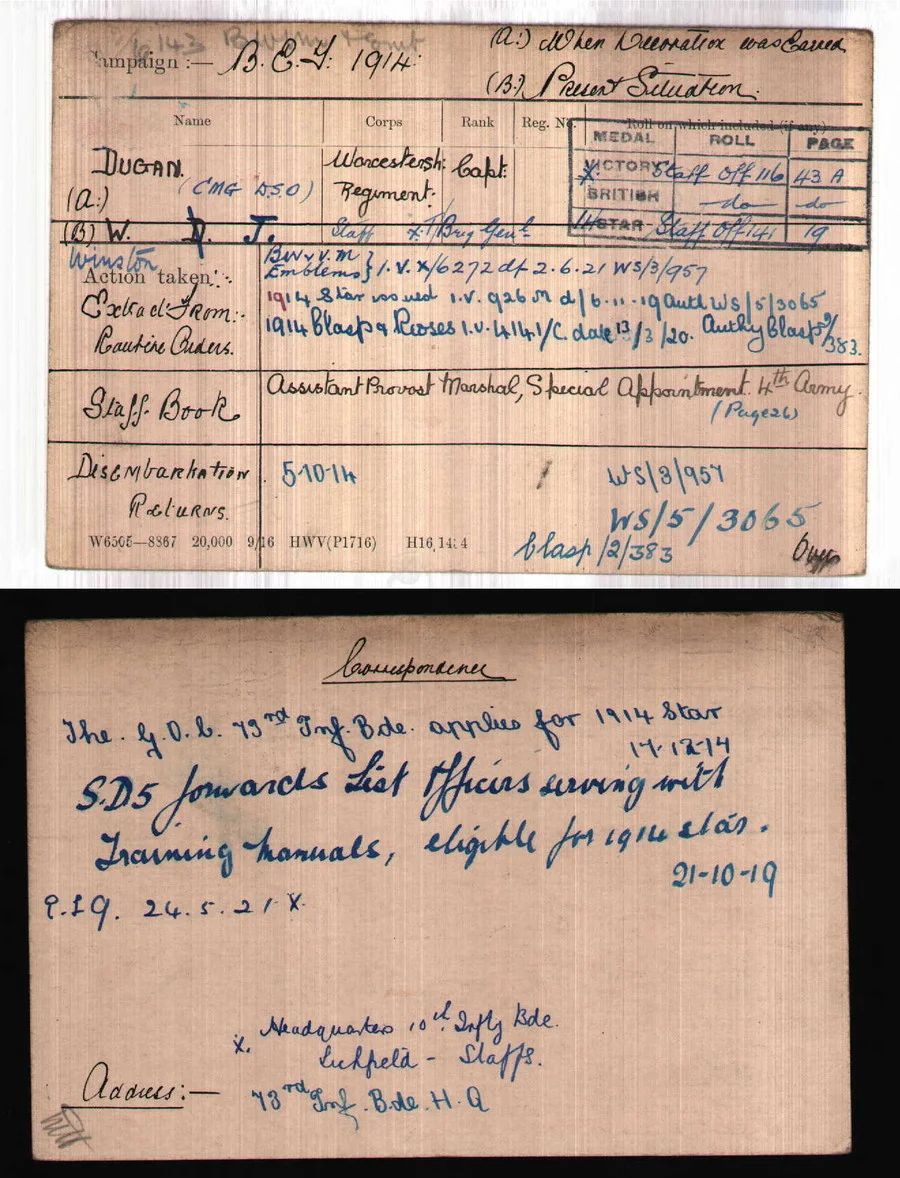 Campaign :— B.E.F. 1914.
(A.) When Decoration was Earned
(B.) Present Situation.
Name Corps Rank Reg. No. Roll on which included (if any)
MEDAL ROLL PAGE
DUGAN. (CMG DSO) Worcestersh: Capt:
(A.) Regiment.
VICTORY Staff Off 116 43 A
BRITISH —do— —do—
14 STAR Staff Off 141 19
(B) W. D. J. Staff x T/Brig Genl
Winston
Action taken :-
BW & V.M }
Emblems } I.V. X/6272 df 2.6.21 WS/3/957
Extract From:-
Routine Orders.
1914 Star issued I.V. 926 M d/6-11-19 Auth WS/5/3065
1914 Clasp & Roses I.V. 4141/C. date 13/3/20. Authy Clasp 2/383.
Staff Book
Assistant Provost Marshal, Special Appointment. 4th Army.
(Page 26)
Disembarkation
Returns.
5-10-14
WS/3/957
WS/5/3065
Clasp/2/383
W6505—8867 20,000 9/16 HWV(P1716) H16,1434
Correspondence
The. G.O.C. 73rd Inf. Bde. applies for 1914 Star
17-12-14
S.D5 forwards List Officers serving with
Training Manuals, eligible for 1914 Star.
21-10-19
24.5.21 X.
x. Headquarters 10th Infty Bde.
Lichfield - Staffs.
Address:— 73rd Inf. Bde. H.Q